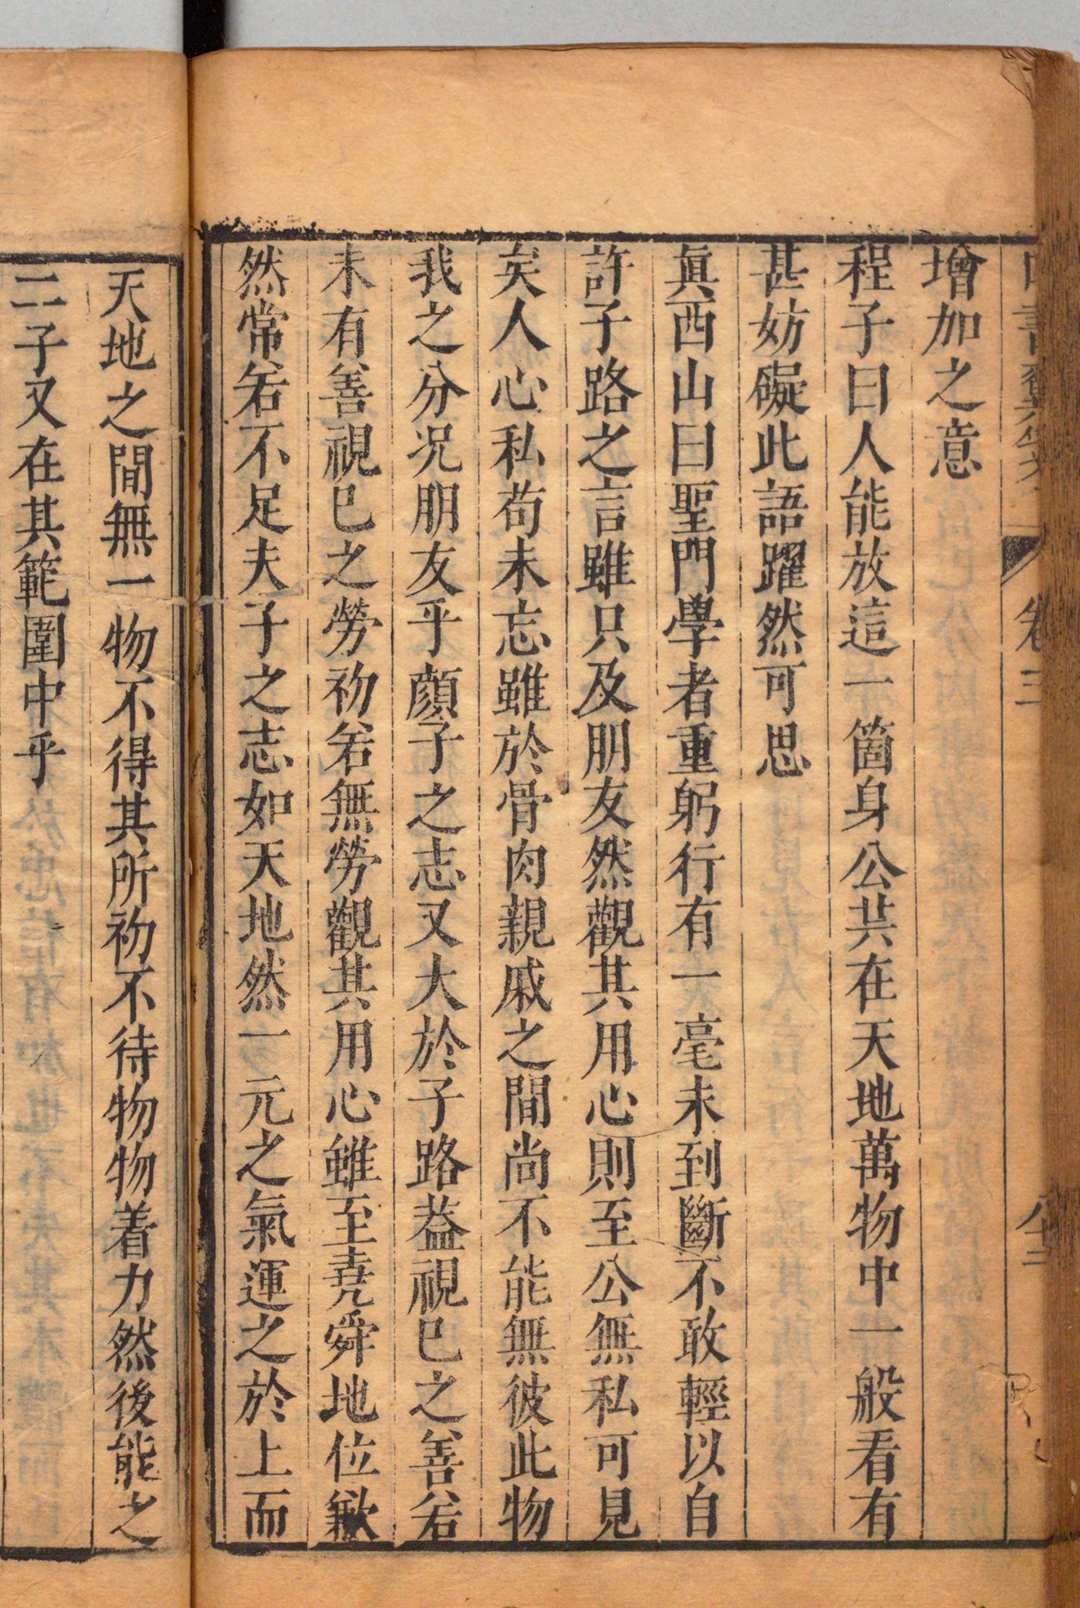 卷三
增加之意
程子曰人能放這一箇身公共在天地萬物中一般看有
甚妨礙此語躍然可思
眞西山曰聖門學者重躬行有一毫未到斷不敢輕以自
許子路之言雖只及朋友然觀其用心則至公無私可見
矣人心私苟未忘雖於骨肉親戚之間尚不能無彼此物
我之分况朋友乎顔子之志又大於子路葢視已之善若
未有善視已之勞初若無勞觀其用心雖至堯舜地位歉
然常若不足夫子之志如天地然一元之氣運之於上而
天地之間無一物不得其所初不待物物着力然後能之
二子又在其範圍中乎